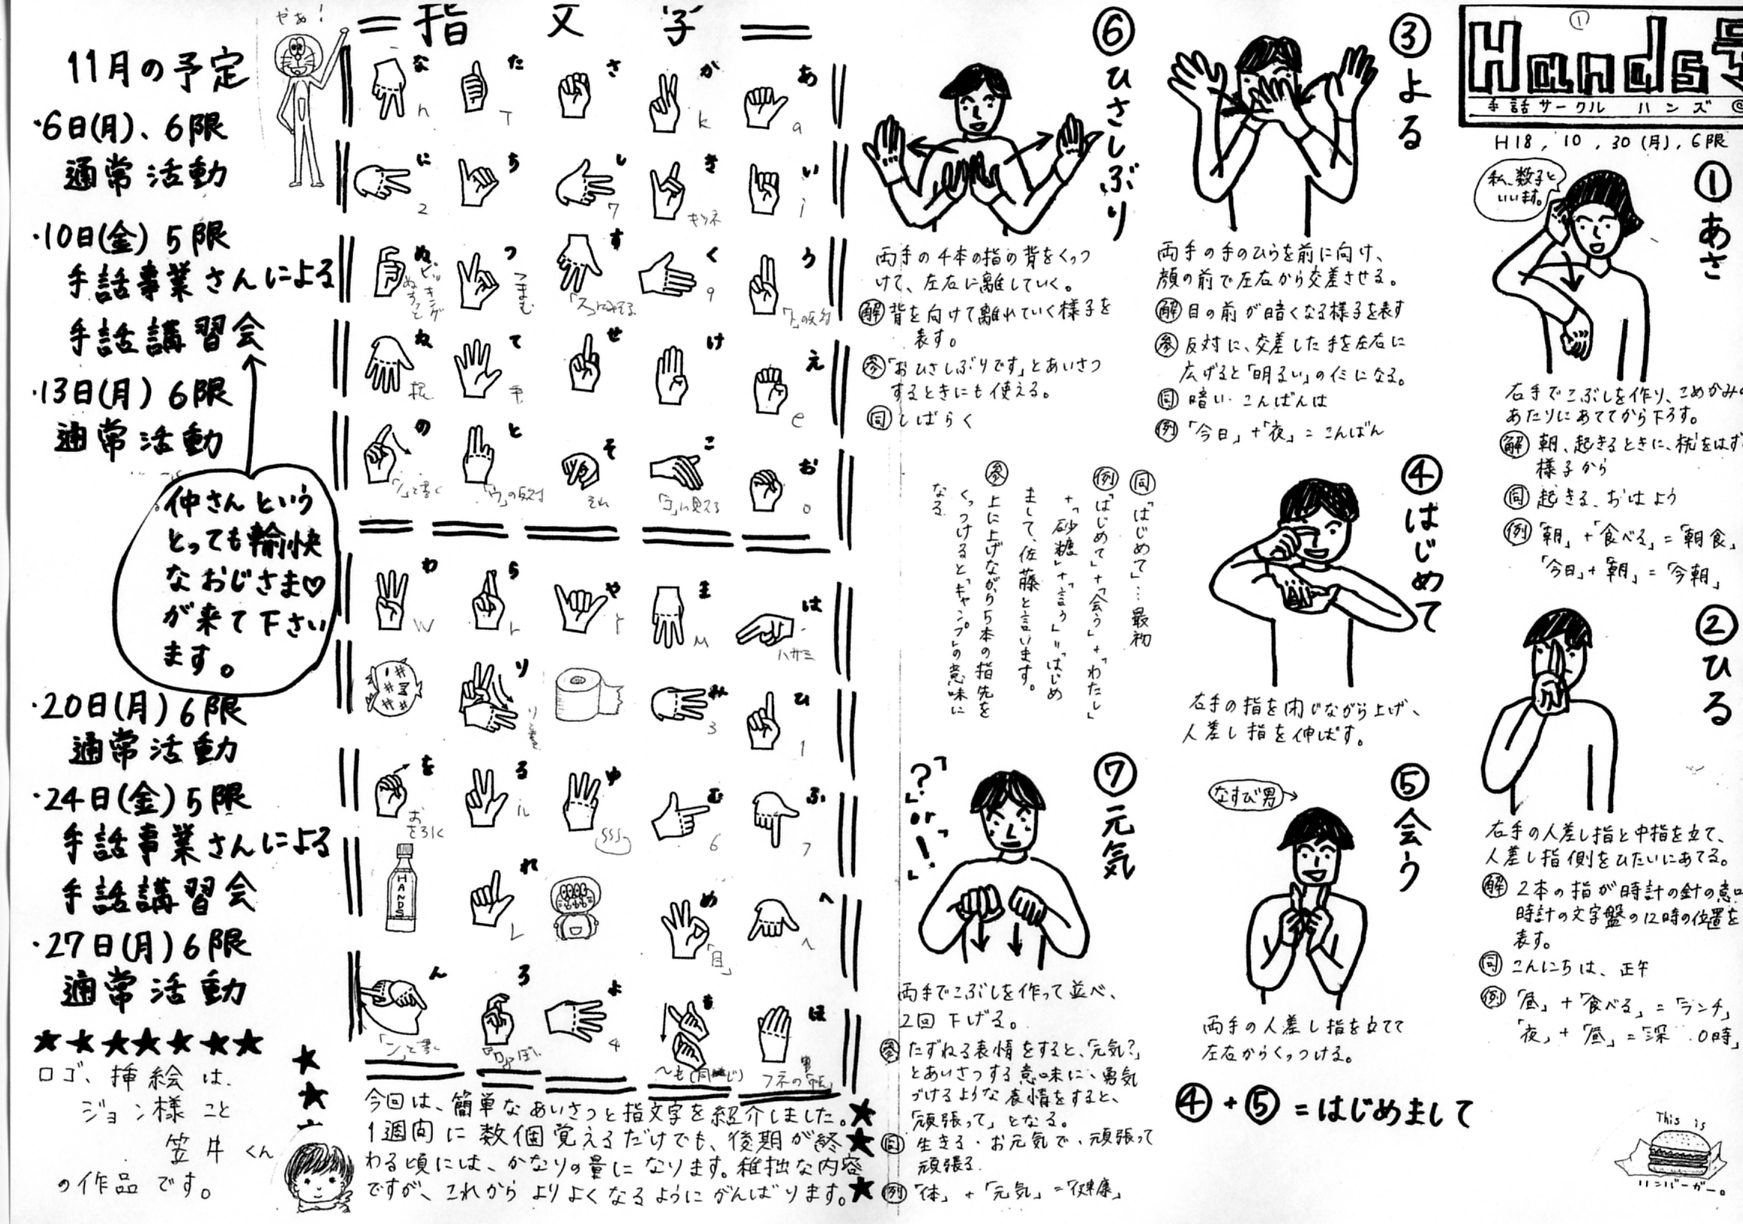 Hands
手話サークル ハンズ
H18, 10, 30(月), 6限
①あさ
私、数子と
いいます。
右手でこぶしを作り、こめかみの
あたりにあててから下ろす。
解 朝、起きるときに、枕をはず
様子から
同 起きる、おはよう
例「朝」+「食べる」=「朝食」
「今日」+「朝」=「今朝」
②ひる
右手の人差し指と中指を立て、
人差し指側をひたいにあてる。
解 2本の指が時計の針の意
時計の文字盤の12時の位置を
表す。
同 こんにちは、正午
例「昼」+「食べる」=「ランチ」
「夜」+「昼」=「深 0時」
This is
ハンバーガー。
③よる
両手の手のひらを前に向け、
顔の前で左右から交差させる。
解 目の前が暗くなる様子を表す
参 反対に、交差した手を左右に
広げると「明るい」の意になる。
同 暗い・こんばんは
例「今日」+「夜」=こんばん
④はじめて
右手の指を閉じながら上げ、
人差し指を伸ばす。
同「はじめて」…最初
例「はじめて」+「会う」+「わたし」
+「砂糖」+「言う」=「はじめ
まして、佐藤と言います。
参 上に上げながら5本の指先を
くっつけると「キャンプ」の意味に
なる
⑤会う
なすび男→
両手の人差し指を立てて
左右からくっつける。
④+⑤=はじめまして
⑥ひさしぶり
両手の4本の指の背をくっつ
けて、左右に離していく。
解 背を向けて離れていく様子を
表す。
参「おひさしぶりです」とあいさつ
するときにも使える。
同 しばらく
⑦元気
「?」
or
「!」
両手でこぶしを作って並べ、
2回下げる。
参 たずねる表情をすると、「元気?」
とあいさつする意味に、勇気
づけるような表情をすると、
「頑張って」となる。
同 生きる・お元気で・頑張って
頑張る
例「体」+「元気」=「健康」
=指文字=
あ a
い i
う 「と」の反対
え e
お o
か k
き キツネ
く 9
け
こ 「コ」に見える
さ
し 7
す 「ス」にみえる
せ
そ それ
た T
ち
つ つまむ
て 手
と 「う」の反対
な n
に 2
ぬ ピッキング
ぬすっと
ね 根
の 「ノ」と書く
は ハサミ
ひ 1
ふ フ
へ ヘ
ほ フネの「帆」
ま M
み 3
む 6
め 「目」
も ~も(同じ)
や Y
ゆ
よ 4
ら r
り リと書く
る ル
れ レ
ろ 「ロ」っぽい
わ W
を おを引く
ん 「ン」と書く
HANDS
やぁ!
11月の予定
・6日(月)、6限
通常活動
・10日(金)5限
手話事業さんによる
手話講習会
・13日(月)6限
通常活動
仲さんという
とっても愉快
なおじさま♡
が来て下さい
ます。
・20日(月)6限
通常活動
・24日(金)5限
手話事業さんによる
手話講習会
・27日(月)6限
通常活動
★★★★★★★★
ロゴ、挿絵は、
ジョン様こと
笠井くん
の作品です。
今回は、簡単なあいさつと指文字を紹介しました。
1週間に数個覚えるだけでも、後期が終
わる頃には、かなりの量になります。稚拙な内容
ですが、これからよりよくなるようにがんばります。